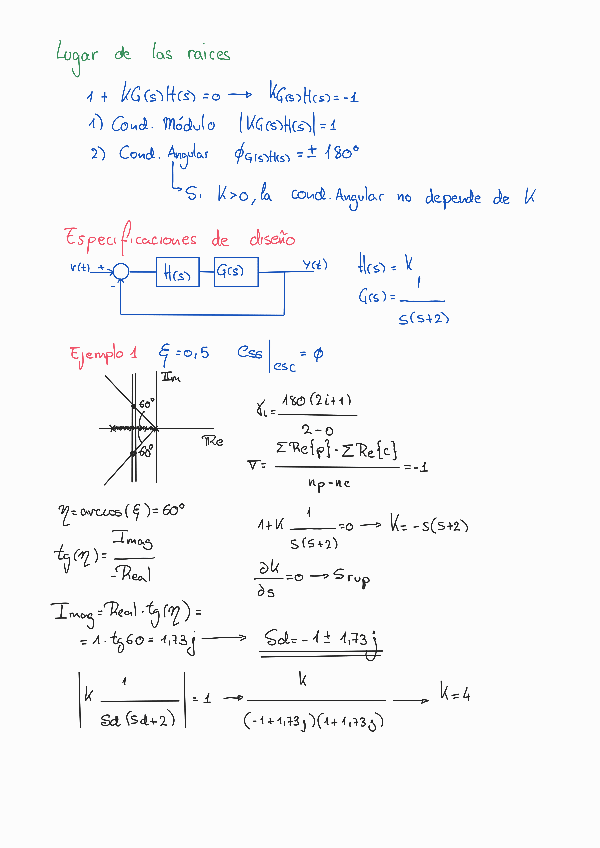 Lugar de las raices
1 + KG(s)H(s) = 0 → KG(s)H(s) = -1
1) Cond. Módulo |KG(s)H(s)| = 1
2) Cond. Angular ϕG(s)H(s) = ± 180°
Si K>0, la cond. Angular no depende de K
Especificaciones de diseño
r(t) + - H(s) G(s) y(t)
H(s) = K
G(s) = 1 / s(s+2)
Ejemplo 1 ξ = 0,5 ess|esc = ϕ
Im
60°
60°
Re
γi = 180(2i+1) / 2-0
∇ = ΣRe{p} - ΣRe{c} / np-nc = -1
η = arccos(ξ) = 60°
1+K 1 / s(s+2) = 0 → K = -s(s+2)
tg(η) = Imag / -Real
∂k / ∂s = 0 → Srup
Imag = Real · tg(η) =
= 1 · tg60 = 1,73j → Sd = -1 ± 1,73j
|K 1 / Sd(Sd+2)| = 1 → K / (-1+1,73j)(1+1,73j) → K=4